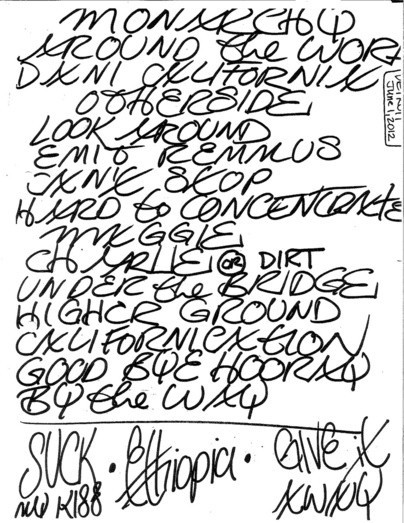 MONARCHY
AROUND the WORL
DANI CALIFORNIA
OTHERSIDE
LOOK AROUND
EMIT REMMUS
JUNE 1, 2012
SKOP
HARD to CONCENTRATE
MAGGIE
CHARLIE OR DIRT
UNDER the BRIDGE
HIGHER GROUND
CALIFORNICATION
GOOD BYE HOORAY
BY the WAY
SUCK · Ethiopia · GIVE iT
MY KISS AWAY